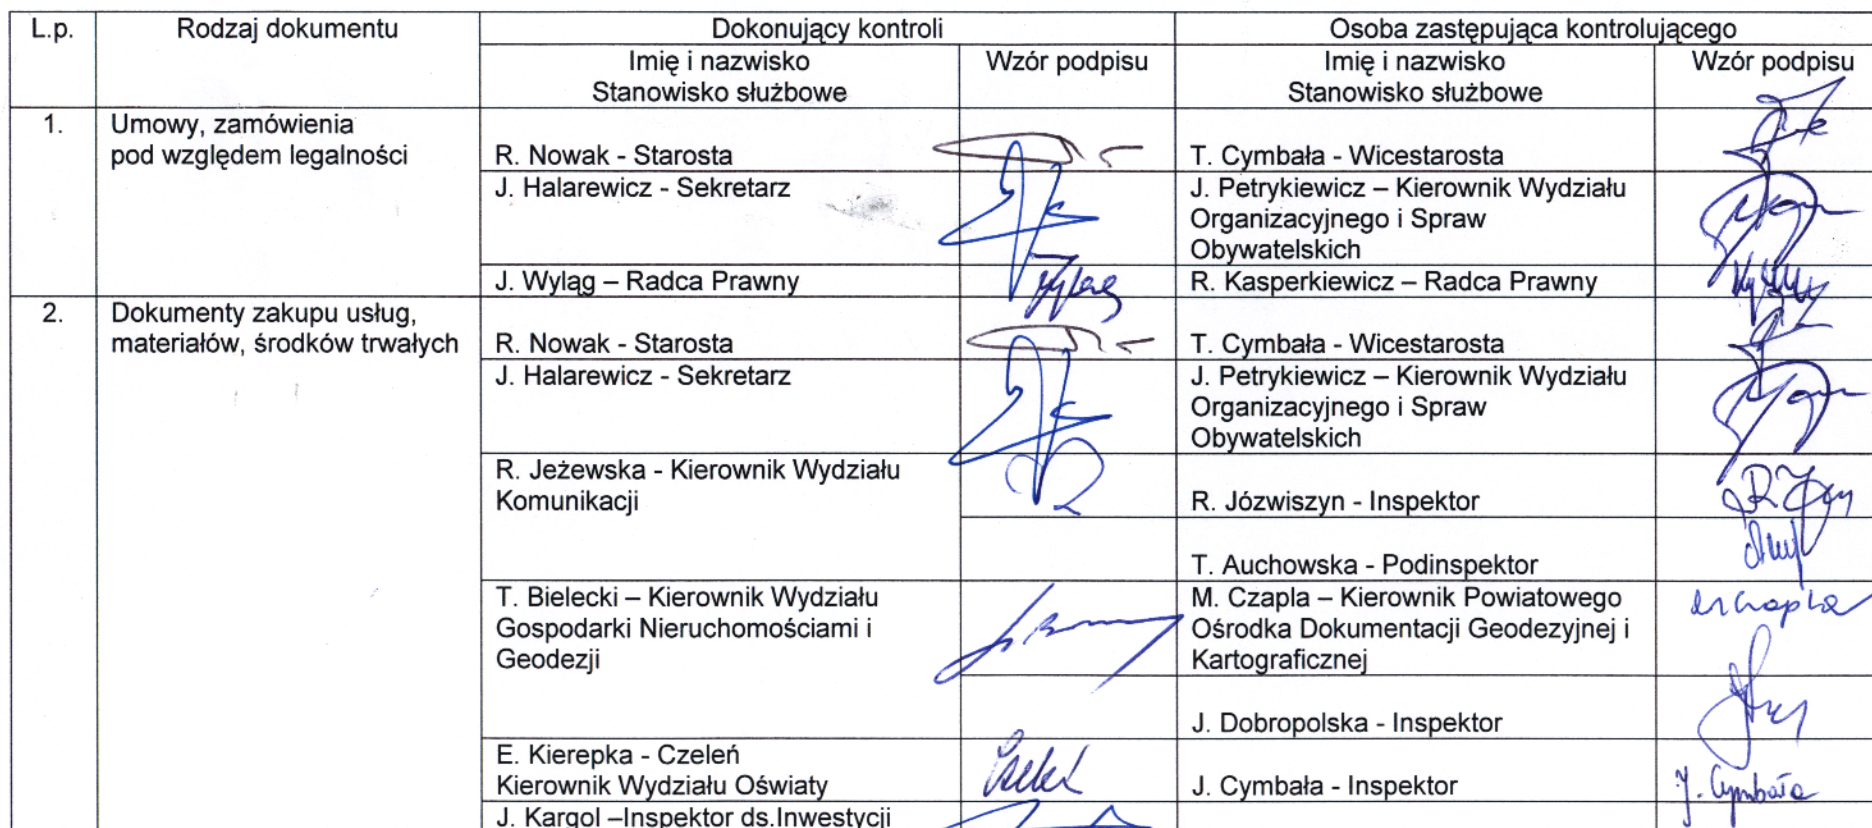 L.p. Rodzaj dokumentu Dokonujący kontroli Osoba zastępująca kontrolującego
Imię i nazwisko Wzór podpisu Imię i nazwisko Wzór podpisu
Stanowisko służbowe Stanowisko służbowe
1. Umowy, zamówienia
pod względem legalności R. Nowak - Starosta T. Cymbała - Wicestarosta
J. Halarewicz - Sekretarz J. Petrykiewicz – Kierownik Wydziału
Organizacyjnego i Spraw
Obywatelskich
J. Wyląg – Radca Prawny R. Kasperkiewicz – Radca Prawny
2. Dokumenty zakupu usług,
materiałów, środków trwałych R. Nowak - Starosta T. Cymbała - Wicestarosta
J. Halarewicz - Sekretarz J. Petrykiewicz – Kierownik Wydziału
Organizacyjnego i Spraw
Obywatelskich
R. Jeżewska - Kierownik Wydziału
Komunikacji R. Józwiszyn - Inspektor
T. Auchowska - Podinspektor
T. Bielecki – Kierownik Wydziału M. Czapla – Kierownik Powiatowego
Gospodarki Nieruchomościami i Ośrodka Dokumentacji Geodezyjnej i
Geodezji Kartograficznej
J. Dobropolska - Inspektor
E. Kierepka - Czeleń
Kierownik Wydziału Oświaty J. Cymbała - Inspektor J. Cymbała
J. Kargol –Inspektor ds.Inwestycji